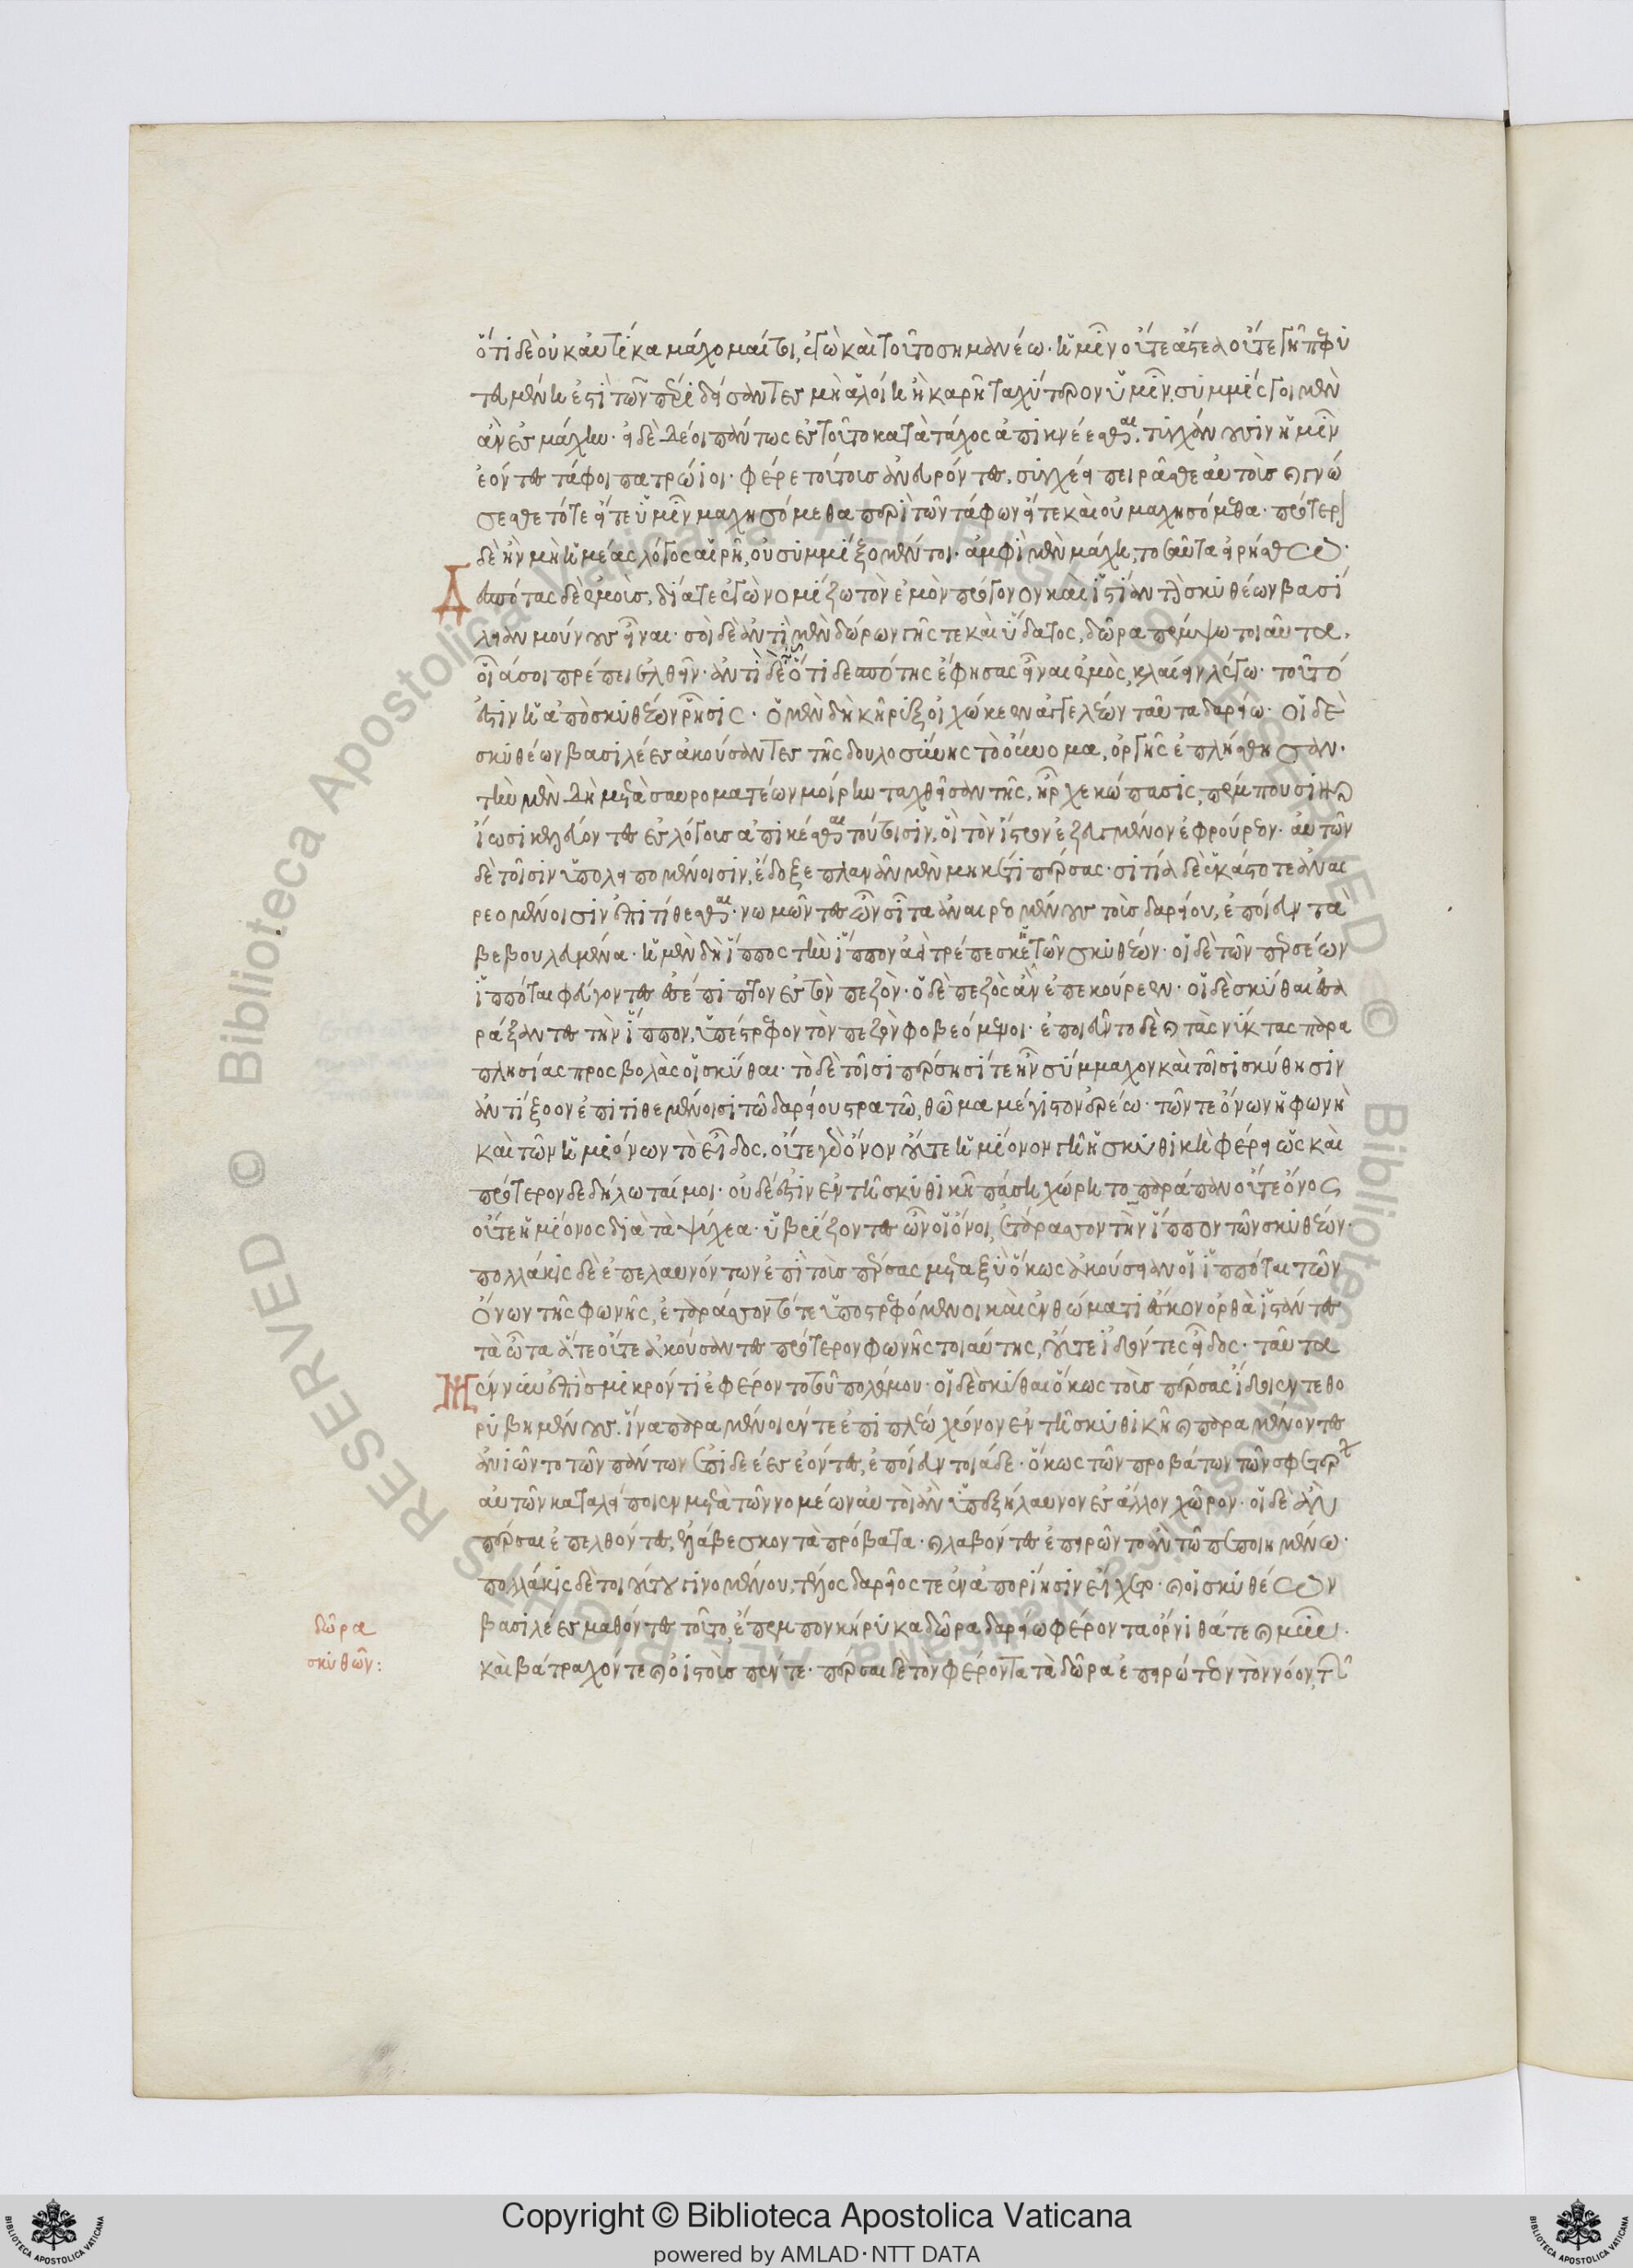 ὅτι δὲ οὐκ αὐτίκα μάχομαί τοι, ἐγὼ καὶ τοῦτο σημανέω. ἡμῖν οὔτε ἄστεα οὔτε γῆ πεφυ
τευμένη ἐστὶ τῶν πέρι δείσαντες μὴ ἁλοίη ἢ καρῇ ταχύτερον ὑμῖν συμμίσγοιμεν
ἂν ἐς μάχην. εἰ δὲ δέοι πάντως ἐς τοῦτο κατὰ τάχος ἀπικνέεσθαι, τυγχάνουσιν ἡμῖν
ἐόντες τάφοι πατρώιοι. φέρετε τούτους ἀνευρόντες, συγχέειν πειρᾶσθε αὐτοὺς καὶ γνώ
σεσθε τότε εἴτε ὑμῖν μαχησόμεθα περὶ τῶν τάφων εἴτε καὶ οὐ μαχησόμεθα. πρότερον
δὲ ἢν μὴ ἡμέας λόγος αἱρῇ, οὐ συμμίξομέν τοι. ἀμφὶ μὲν μάχῃ, τοσαῦτα εἰρήσθω.
Δεσπότας δὲ ἐμοὺς, διά τε ἐγὼ νομίζω τὸν ἐμὸν πρόγονον καὶ ἱστίαν τὴν σκυθέων βασί
λειαν μούνους εἶναι. σοὶ δὲ ἀντὶ μὲν δώρων γῆς τε καὶ ὕδατος, δῶρα πέμψω τοιαῦτα,
οἷά σοι πρέπει ἐλθεῖν. ἀντὶ δὲ τοῦ ὅτι δεσπότης ἔφησας εἶναι ἐμὸς, κλαίειν λέγω. τοῦτό
ἐστιν ἡ ἀπὸ σκυθέων ῥῆσις. ὁ μὲν δὴ κῆρυξ οἰχώκεεν ἀγγελέων ταῦτα δαρείω. οἱ δὲ
σκυθέων βασιλέες ἀκούσαντες τῆς δουλοσύνης τὸ οὔνομα, ὀργῆς ἐπλήσθησαν.
τὴν μὲν δὴ μετὰ σαυροματέων μοίρην ταχθεῖσαν τῆς, ἦρχε κώπασις, πέμπουσι καὶ
ἰωσι κελεύοντες ἐς λόγους ἀπικέσθαι τούτοισιν, οἳ τὸν ἴστρον ἐζευγμένον ἐφρούρεον. αὐτῶν
δὲ τοῖσιν ὑπολειπομένοισιν, ἔδοξε πλανᾶν μὲν μηκέτι πέρσας. σιτία δὲ ἑκάστοτε ἀναι
ρεομένοισιν ἐπιτίθεσθαι. νωμῶντες ὦν σῖτα ἀναιρεομένους τοὺς δαρείου, ἐποίευν τὰ
βεβουλευμένα. ἡ μὲν δὴ ἵππος τὴν ἵππον ἀεὶ τρέπεσκε ἡ τῶν σκυθέων. οἱ δὲ τῶν περσέων
ἱππόται φεύγοντες ἐσέπιπτον ἐς τὸν πεζὸν. ὁ δὲ πεζὸς ἂν ἐπεκούρεεν. οἱ δὲ σκύθαι ἐσα
ράξαντες τὴν ἵππον, ὑπέστρεφον τὸν πεζὸν φοβεόμενοι. ἐποιεῦντο δὲ καὶ τὰς νύκτας παρα
πλησίας προσβολὰς οἱ σκύθαι. τὸ δὲ τοῖσι πέρσῃσί τε ἦν σύμμαχον καὶ τοῖσι σκύθῃσιν
ἀντίξοον ἐπιτιθεμένοισι τῶ δαρείου στρατῶ, θῶμα μέγιστον ἐρέω. τῶν τε ὄνων ἡ φωνὴ
καὶ τῶν ἡμιόνων τὸ εἶδος. οὔτε γὰρ ὄνον οὔτε ἡμίονον γῆ ἡ σκυθικὴ φέρει ὡς καὶ
πρότερον δεδήλωταί μοι. οὐδέ ἐστιν ἐν τῆ σκυθικῆ πάσῃ χώρῃ το παράπαν οὔτε ὄνος
οὔτε ἡμίονος διὰ τὰ ψύχεα. ὑβρίζοντες ὦν οἱ ὄνοι, ἐτάρασσον τὴν ἵππον τῶν σκυθέων.
πολλάκις δὲ ἐπελαυνόντων ἐπὶ τοὺς πέρσας μεταξὺ ὅκως ἀκούσειαν οἱ ἱππόται τῶν
ὄνων τῆς φωνῆς, ἐταράσσοντό τε ὑποστρεφόμενοι καὶ ἐν θώματι ἔσκον ὀρθὰ ἱστάντες
τὰ ὦτα ἅτε οὔτε ἀκούσαντες πρότερον φωνῆς τοιαύτης, οὔτε ἰδόντες εἶδος. ταῦτα
μέν νυν ἐπὶ σμικρόν τι ἐφέροντο τοῦ πολέμου. οἱ δὲ σκύθαι ὅκως τοὺς πέρσας ἴδοιεν τεθο
ρυβημένους. ἵνα παραμένοιέν τε ἐπὶ πλέω χρόνον ἐν τῆ σκυθικῆ καὶ παραμένοντες
ἀνιῶντο τῶν πάντων ἐπιδεέες ἐόντες, ἐποίευν τοιάδε. ὅκως τῶν προβάτων τῶν σφετέρων
αὐτῶν καταλείποιεν μετὰ τῶν νομέων αὐτοὶ ἂν ὑπεξήλαυνον ἐς ἄλλον χῶρον. οἱ δὲ ἂν
πέρσαι ἐπελθόντες, ἐλάβεσκον τὰ πρόβατα. καὶ λαβόντες ἐπῃροντο ἂν τῶ πεποιημένω.
πολλάκις δὲ τοιούτου γινομένου, τέλος δαρεῖος τε ἐν ἀπορίῃσιν εἴχετο. καὶ οἱ σκυθέων
βασιλέες μαθόντες τοῦτο, ἔπεμπον κήρυκα δῶρα δαρείω φέροντα ὄρνιθά τε καὶ μῦν
καὶ βάτραχόν τε καὶ ὀιστοὺς πέντε. πέρσαι δὲ τὸν φέροντα τὰ δῶρα ἐπειρώτεον τὸν νόον τῶν
δῶρα
σκυθῶν:
Copyright © Biblioteca Apostolica Vaticana
powered by AMLAD·NTT DATA